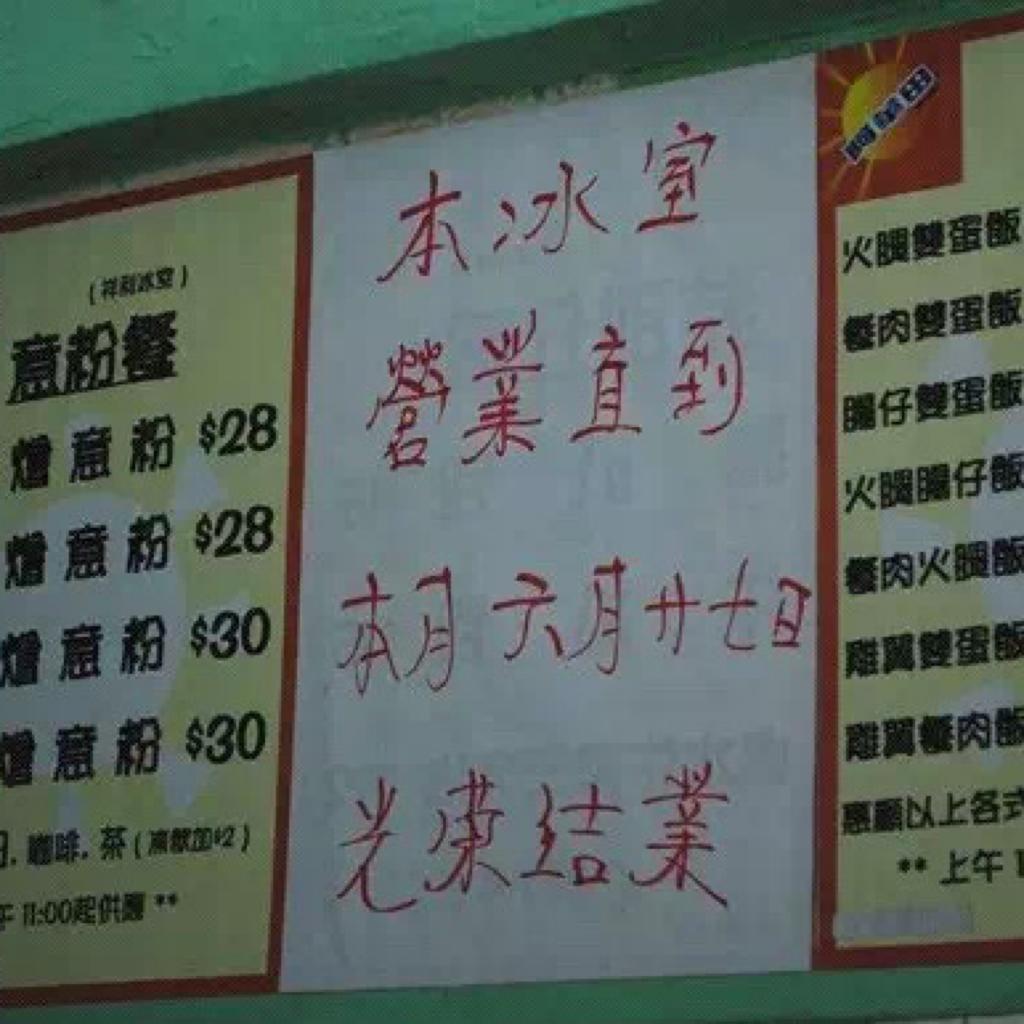 (祥利冰室)
意粉餐
燴意粉 $28
燴意粉 $28
燴意粉 $30
燴意粉 $30
咖啡. 茶 (凍飲加$2)
午 11:00起供應 **
本冰室
營業直到
本月六月廿七日
光榮结業
阿華田
火腿雙蛋飯
餐肉雙蛋飯
腸仔雙蛋飯
火腿腸仔飯
餐肉火腿飯
雞翼雙蛋飯
雞翼餐肉飯
惠顧以上各式
** 上午 1